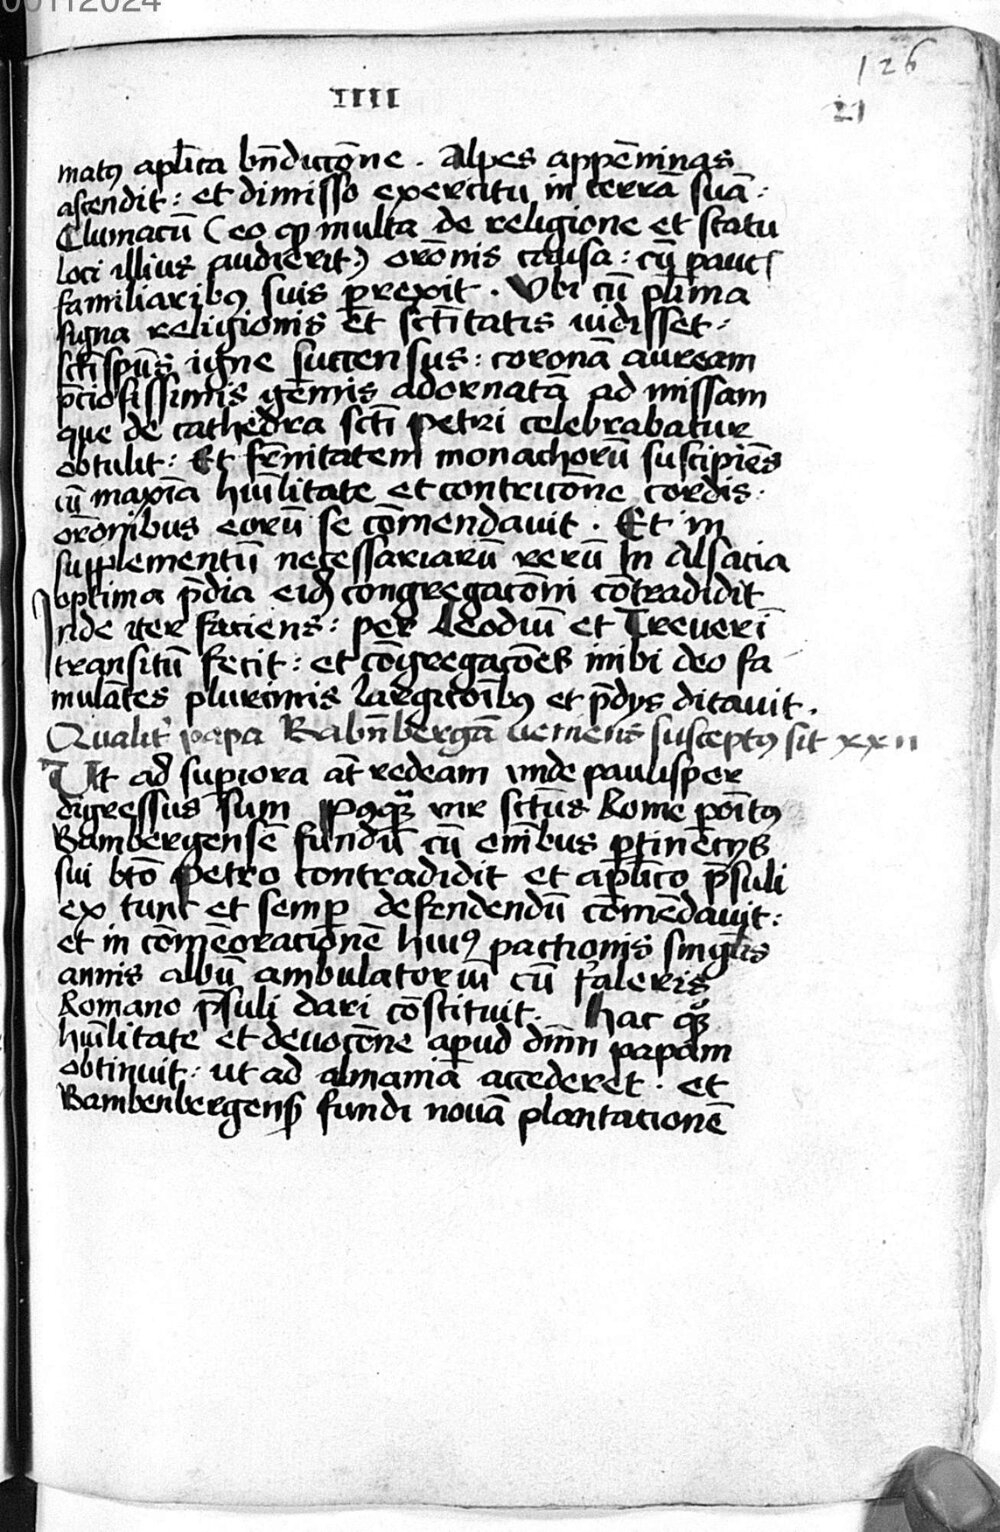 00112024
126
21
IIII
matꝯ apl̄ica bn̄diccōne . Alpes appēninas
ascendit : et dimisso exercitu in terrā suā :
Cluniacū ( eo qꝫ multa de religione et statu
loci illius audierit ) orōnis causa : cū pauc
familiaribꝯ suis ꝑrexit . Vbi cū pl̄ima
signa religionis et sctītatis vidisset :
scti spūs igne succensus : coronā auream
p̄ciosissimis gēmis adornatā ad missam
que de cathedra sctī petri celebrabatur
obtulit : Et frn̄itatem monachorū suscipiēs
cū maxīa hūilitate et contricōne cordis :
orōnibus eorū se cōmendauit . Et in
supplementū necessariarū rerū In Alsacia
optima p̄dia eidꝫ congregacōni cōtradidit
Inde iter faciens : per Leodiū et Treuerī
transitū fecit : et cōgregacōes inibi deo fa
mulātes plurimis largicōibꝯ et p̄dys ditauit .
Qualit papa Babn̄bergā veniens susceptꝯ sit xxii
Ut ad supiora at̄ redeam vnde paulisper
digressus sum Pꝯqꝫ vir sctūs Rome poītꝯ
Bambergensē fundū cū om̄ibus ꝑtinēcys
sui bt̄o Petro contradidit et apl̄ico p̄suli
ex tunc et semꝑ defendendū cōmēdauit :
et in cōmēoracionē huiꝯ pactionis singl̄is
annis albū ambulatoriū cū faleris
Romano p̄suli dari cōstituit . Hac qꝫ
hūilitate et deuocōne apud dn̄m papam
obtinuit : ut ad almaniā accederet . et
Bambenbergens fundi nouā plantacionē